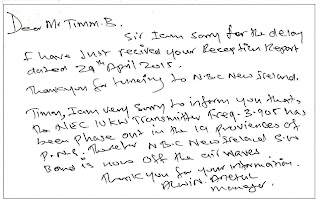 Dear Mr Timm.B.
Sir I am sorry for the delay
I have Just recived your Reception Report
dated 29th April 2015.
Thankyou for tunning to NBC New Ireland.
Timm, I am very sorry to inform you that,
the NEC 10KW Transmitter Freq. 3.905 has
been phase out in the 19 proviences of
P.N.G. Therefor NBC New Ireland S.W
Band is now off the air waves
Thank you for your information.
manager.